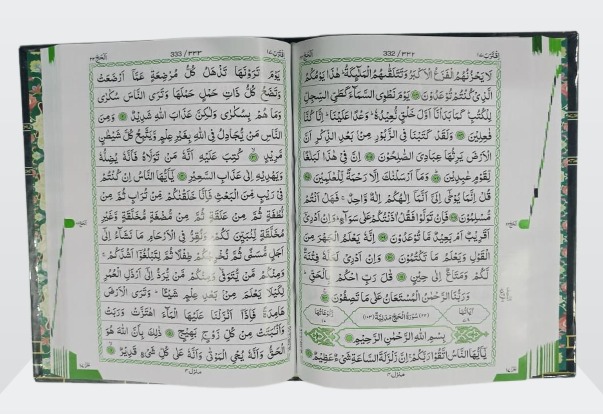 اقترب ١٧
332 / ٣٣٢
الحج ٢٢
لَا يَحْزُنُهُمُ الْفَزَعُ الْاَكْبَرُ وَتَتَلَقّٰىهُمُ الْمَلٰٓئِكَةُ ؕ هٰذَا يَوْمُكُمُ
الَّذِيْ كُنْتُمْ تُوْعَدُوْنَ ﴿١٠٣﴾ يَوْمَ نَطْوِي السَّمَآءَ كَطَيِّ السِّجِلِّ
لِلْكُتُبِ ؕ كَمَا بَدَاْنَآ اَوَّلَ خَلْقٍ نُّعِيْدُهٗ ؕ وَعْدًا عَلَيْنَا ؕ اِنَّا كُنَّا
فٰعِلِيْنَ ﴿١٠٤﴾ وَلَقَدْ كَتَبْنَا فِي الزَّبُوْرِ مِنْۢ بَعْدِ الذِّكْرِ اَنَّ
الْاَرْضَ يَرِثُهَا عِبَادِيَ الصّٰلِحُوْنَ ﴿١٠٥﴾ اِنَّ فِيْ هٰذَا لَبَلٰغًا
لِّقَوْمٍ عٰبِدِيْنَ ﴿١٠٦﴾ وَمَآ اَرْسَلْنٰكَ اِلَّا رَحْمَةً لِّلْعٰلَمِيْنَ ﴿١٠٧﴾
قُلْ اِنَّمَا يُوْحٰٓى اِلَيَّ اَنَّمَآ اِلٰهُكُمْ اِلٰهٌ وَّاحِدٌ ۚ فَهَلْ اَنْتُمْ
مُّسْلِمُوْنَ ﴿١٠٨﴾ فَاِنْ تَوَلَّوْا فَقُلْ اٰذَنْتُكُمْ عَلٰى سَوَآءٍ ؕ وَاِنْ اَدْرِيْٓ
اَقَرِيْبٌ اَمْ بَعِيْدٌ مَّا تُوْعَدُوْنَ ﴿١٠٩﴾ اِنَّهٗ يَعْلَمُ الْجَهْرَ مِنَ
الْقَوْلِ وَيَعْلَمُ مَا تَكْتُمُوْنَ ﴿١١٠﴾ وَاِنْ اَدْرِيْ لَعَلَّهٗ فِتْنَةٌ
لَّكُمْ وَمَتَاعٌ اِلٰى حِيْنٍ ﴿١١١﴾ قٰلَ رَبِّ احْكُمْ بِالْحَقِّ ؕ
وَرَبُّنَا الرَّحْمٰنُ الْمُسْتَعَانُ عَلٰى مَا تَصِفُوْنَ ﴿١١٢﴾
(٢٢) سُوْرَةُ الْحَجِّ مَدَنِيَّةٌ (١٠٣)
بِسْمِ اللّٰهِ الرَّحْمٰنِ الرَّحِيْمِ
يٰٓاَيُّهَا النَّاسُ اتَّقُوْا رَبَّكُمْ ۚ اِنَّ زَلْزَلَةَ السَّاعَةِ شَيْءٌ عَظِيْمٌ ﴿١﴾
اقترب ١٧
333 / ٣٣٣
الحج ٢٢
يَوْمَ تَرَوْنَهَا تَذْهَلُ كُلُّ مُرْضِعَةٍ عَمَّآ اَرْضَعَتْ
وَتَضَعُ كُلُّ ذَاتِ حَمْلٍ حَمْلَهَا وَتَرَى النَّاسَ سُكٰرٰى
وَمَا هُمْ بِسُكٰرٰى وَلٰكِنَّ عَذَابَ اللّٰهِ شَدِيْدٌ ﴿٢﴾ وَمِنَ
النَّاسِ مَنْ يُّجَادِلُ فِي اللّٰهِ بِغَيْرِ عِلْمٍ وَّيَتَّبِعُ كُلَّ شَيْطٰنٍ
مَّرِيْدٍ ﴿٣﴾ كُتِبَ عَلَيْهِ اَنَّهٗ مَنْ تَوَلَّاهُ فَاَنَّهٗ يُضِلُّهٗ
وَيَهْدِيْهِ اِلٰى عَذَابِ السَّعِيْرِ ﴿٤﴾ يٰٓاَيُّهَا النَّاسُ اِنْ كُنْتُمْ
فِيْ رَيْبٍ مِّنَ الْبَعْثِ فَاِنَّا خَلَقْنٰكُمْ مِّنْ تُرَابٍ ثُمَّ مِنْ
نُّطْفَةٍ ثُمَّ مِنْ عَلَقَةٍ ثُمَّ مِنْ مُّضْغَةٍ مُّخَلَّقَةٍ وَّغَيْرِ
مُخَلَّقَةٍ لِّنُبَيِّنَ لَكُمْ ؕ وَنُقِرُّ فِي الْاَرْحَامِ مَا نَشَآءُ اِلٰٓى
اَجَلٍ مُّسَمًّى ثُمَّ نُخْرِجُكُمْ طِفْلًا ثُمَّ لِتَبْلُغُوْٓا اَشُدَّكُمْ ۚ
وَمِنْكُمْ مَّنْ يُّتَوَفّٰى وَمِنْكُمْ مَّنْ يُّرَدُّ اِلٰٓى اَرْذَلِ الْعُمُرِ
لِكَيْلَا يَعْلَمَ مِنْۢ بَعْدِ عِلْمٍ شَيْـًٔا ؕ وَتَرَى الْاَرْضَ
هَامِدَةً فَاِذَآ اَنْزَلْنَا عَلَيْهَا الْمَآءَ اهْتَزَّتْ وَرَبَتْ
وَاَنْۢبَتَتْ مِنْ كُلِّ زَوْجٍۢ بَهِيْجٍ ﴿٥﴾ ذٰلِكَ بِاَنَّ اللّٰهَ هُوَ
الْحَقُّ وَاَنَّهٗ يُحْيِ الْمَوْتٰى وَاَنَّهٗ عَلٰى كُلِّ شَيْءٍ قَدِيْرٌ ﴿٦﴾